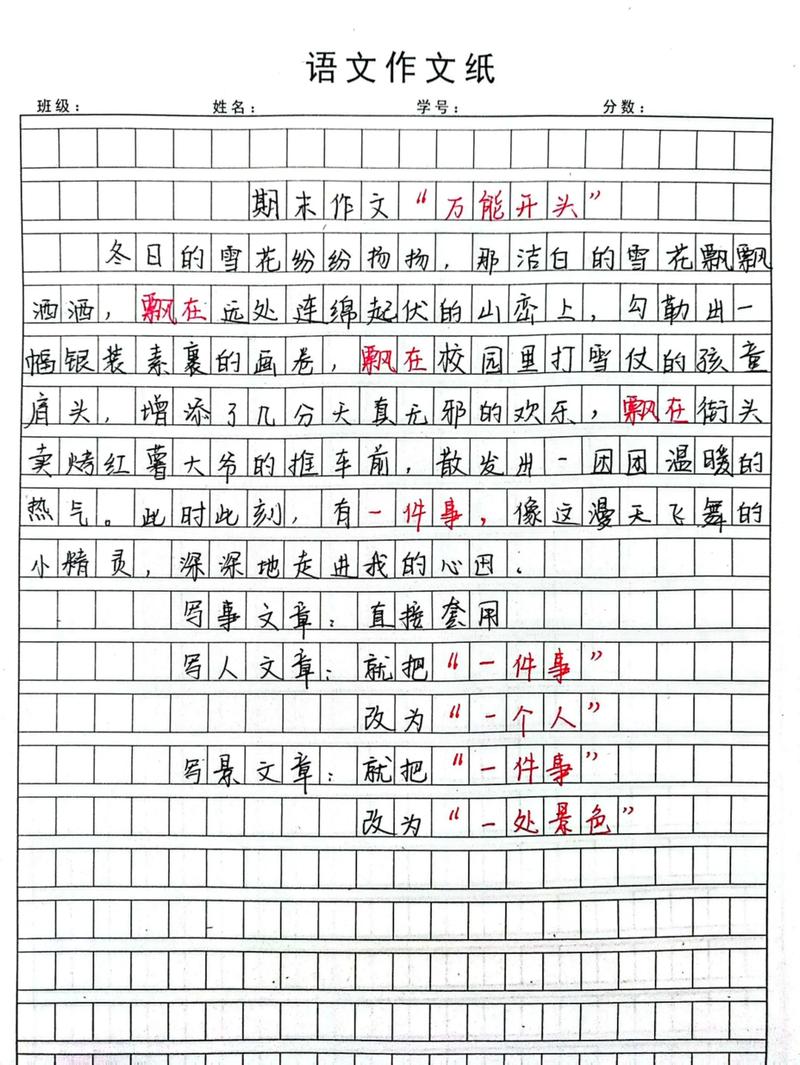 语文作文纸
班级： 姓名： 学号： 分数：
期末作文“万能开头”
冬日的雪花纷纷扬扬，那洁白的雪花飘飘
洒洒，飘在远处连绵起伏的山峦上，勾勒出一
幅银装素裹的画卷，飘在校园里打雪仗的孩童
肩头，增添了几分天真无邪的欢乐，飘在街头
卖烤红薯大爷的推车前，散发出一团团温暖的
热气。此时此刻，有一件事，像这漫天飞舞的
小精灵，深深地走进我的心田。
写事文章：直接套用
写人文章：就把“一件事”
改为“一个人”
写景文章：就把“一件事”
改为“一处景色”